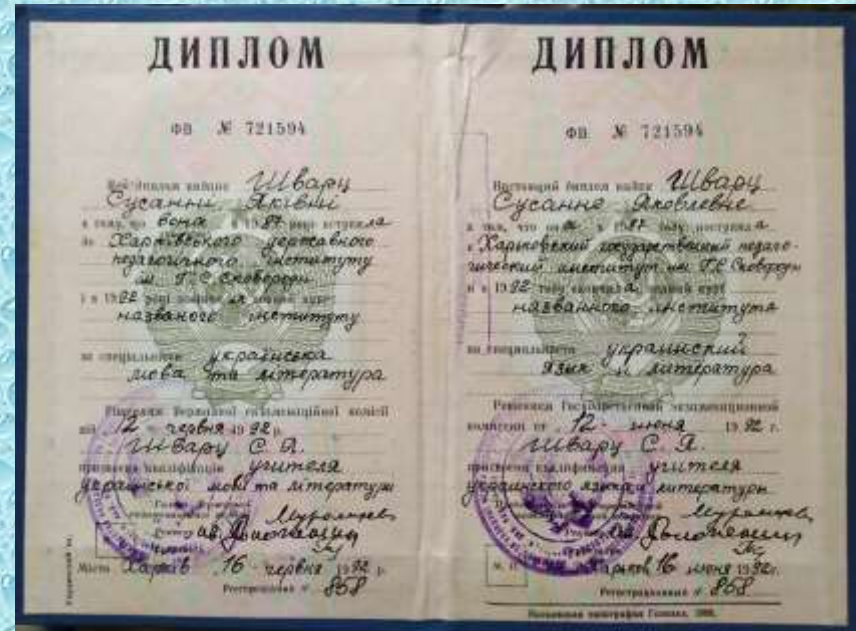 ДИПЛОМ
ФВ № 721594
Цей диплом видано Шварц
Сусанні Яківні
в тому, що вона в 1987 році вступила
до Харківського державного
педагогічного інституту
ім. Г.С. Сковороди
і в 1992 році повний курс
названого інституту
за спеціальністю українська
мова та література
Рішенням Державної екзаменаційної комісії
від 12 червня 1992 р.
Шварц С. Я.
присвоєна кваліфікація учителя
української мови та літератури
Місто Харків 16 червня 1992 р.
Реєстраційний № 858
ДИПЛОМ
ФВ № 721594
Настоящий диплом выдан Шварц
Сусанне Яковлевне
в том, что она в 1987 году поступила
в Харьковский государственный педаго-
гический институт им. Г.С. Сковороды
и в 1992 году окончила полный курс
названного института
по специальности украинский
язык и литература
Решением Государственной экзаменационной
комиссии от 12 июня 1992 г.
Шварц С. Я.
присвоена квалификация учителя
украинского языка и литературы
М. П.
Харьков 16 июня 1992 г.
Регистрационный № 858
Московская типография Гознака.